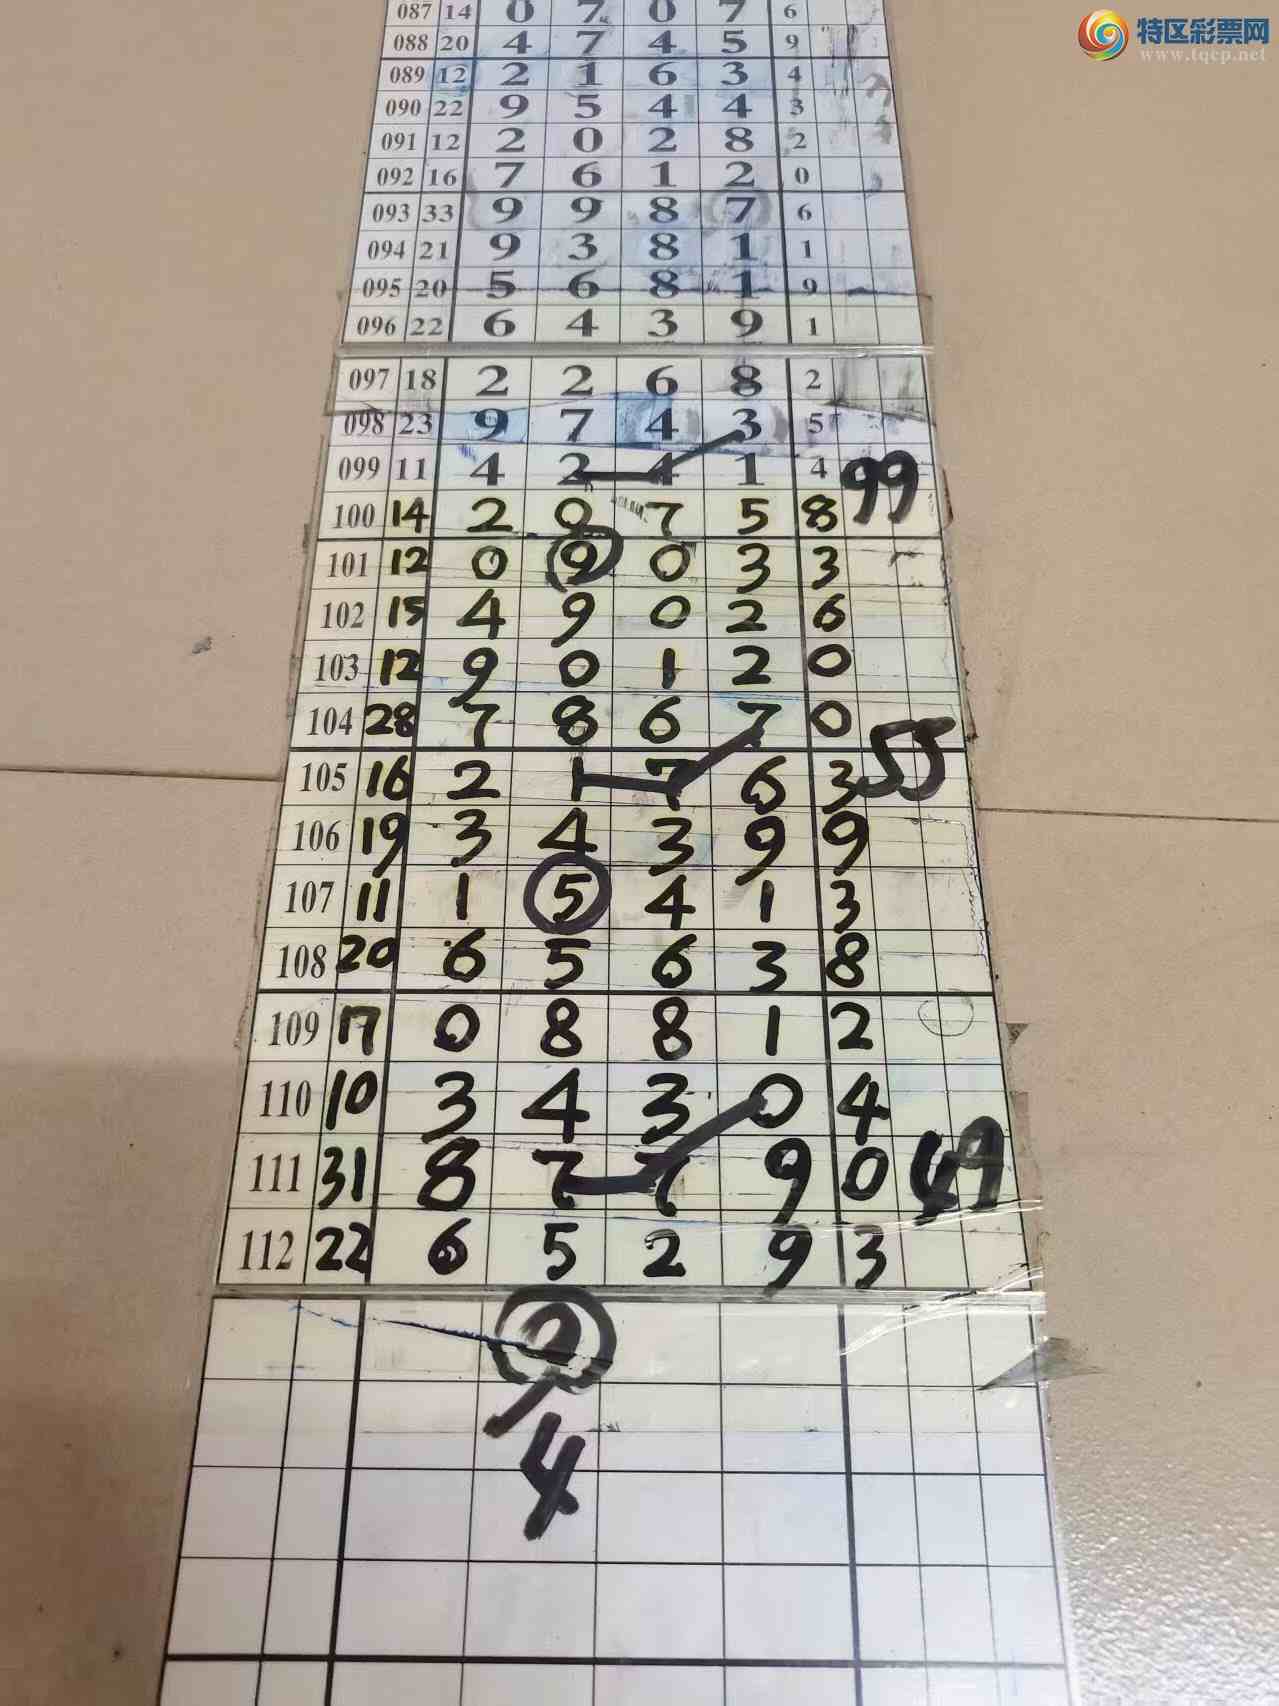 特区彩票网
www.tqcp.net
087 14 0 7 0 7 6
088 20 4 7 4 5 9
089 12 2 1 6 3 4
090 22 9 5 4 4 3
091 12 2 0 2 8 2
092 16 7 6 1 2 0
093 33 9 9 8 7 6
094 21 9 3 8 1 1
095 20 5 6 8 1 9
096 22 6 4 3 9 1
097 18 2 2 6 8 2
098 23 9 7 4 3 5
099 11 4 2 4 1 4 99
100 14 2 0 7 5 8
101 12 0 9 0 3 3
102 15 4 9 0 2 6
103 12 9 0 1 2 0
104 28 7 8 6 7 0
105 16 2 1 7 6 3 55
106 19 3 4 3 9 9
107 11 1 5 4 1 3
108 20 6 5 6 3 8
109 17 0 8 8 1 2
110 10 3 4 3 0 4
111 31 8 7 7 9 0 49
112 22 6 5 2 9 3
9
4